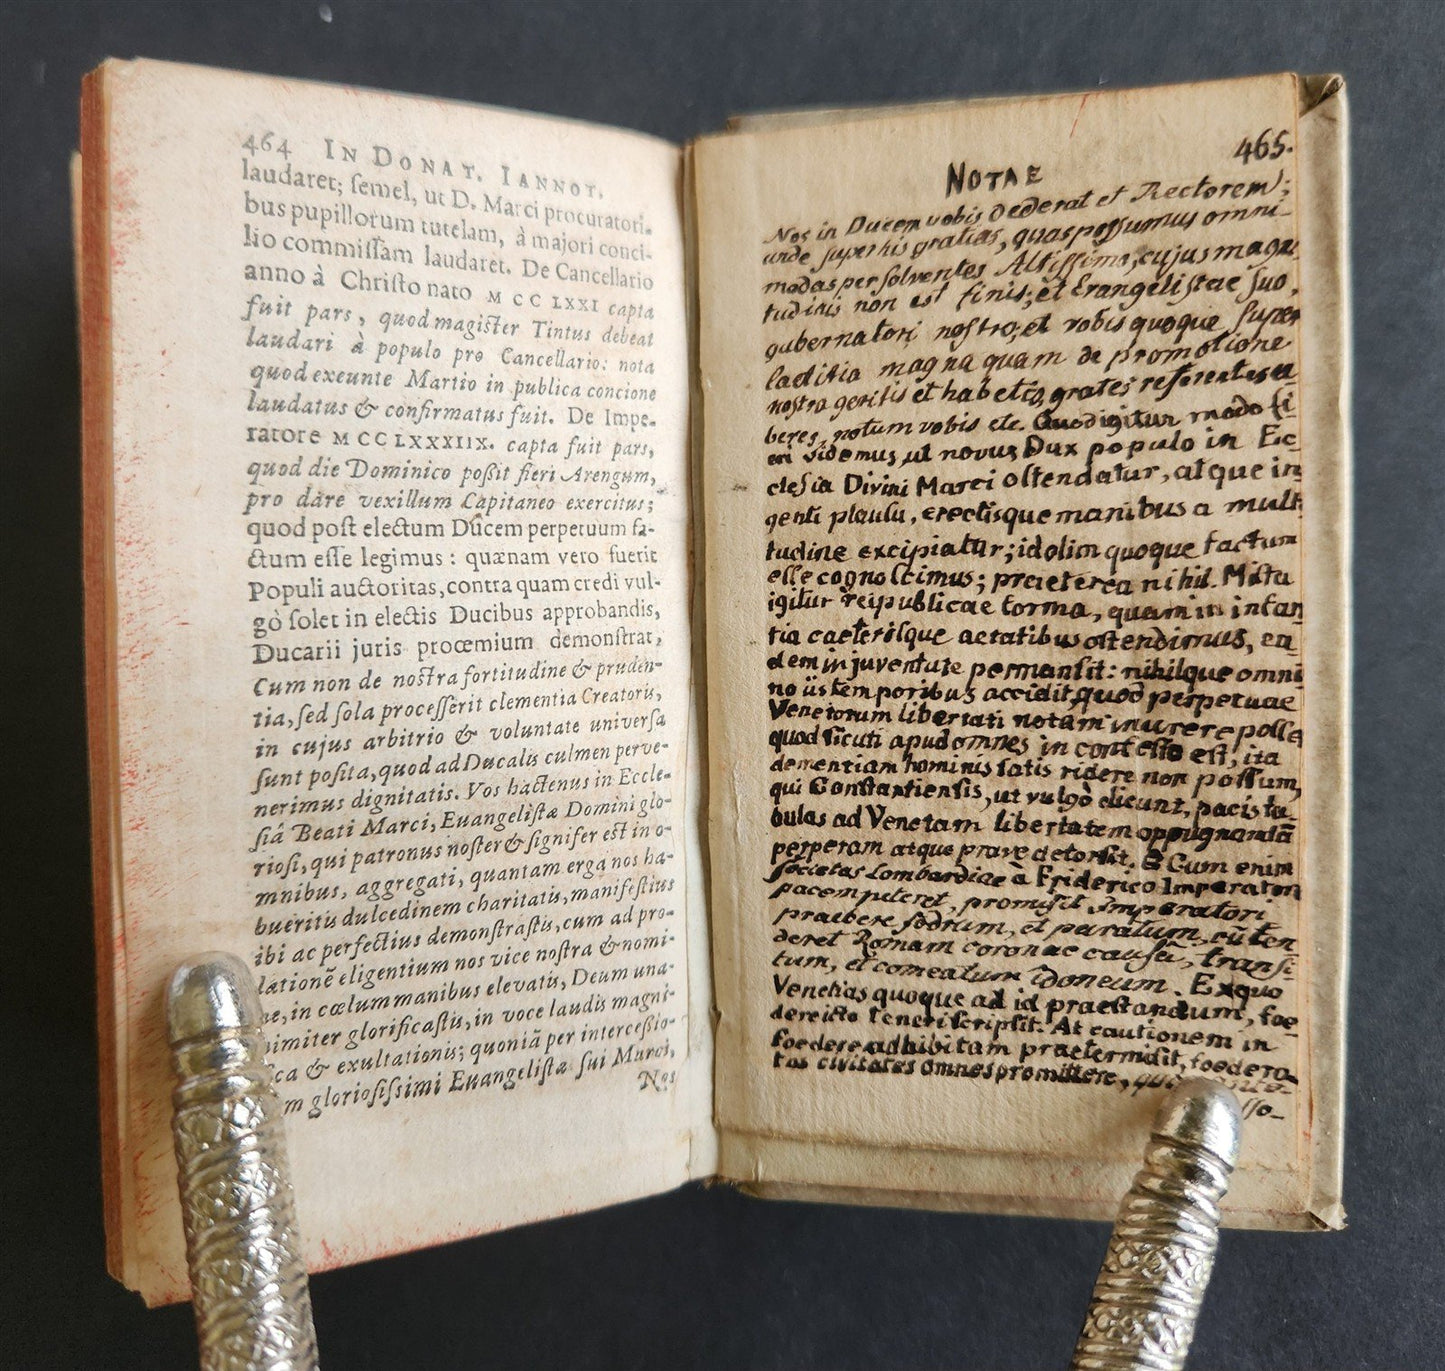 464 IN DONAT. IANNOT.
laudaret; ſemel, ut D. Marci procuratori-
bus pupillorum tutelam, à majori conci-
lio commiſſam laudaret. De Cancellario
anno à Chriſto nato MCCLXXI capta
fuit pars, quod magiſter Tintus debeat
laudari à populo pro Cancellario: nota
quod exeunte Martio in publica concione
laudatus & confirmatus fuit. De Impe-
ratore MCCLXXXIIX. capta fuit pars,
quod die Dominico poßit fieri Arengum,
pro dare vexillum Capitaneo exercitus;
quod poſt electum Ducem perpetuum fa-
ctum eſſe legimus: quænam vero fuerit
Populi auctoritas, contra quam credi vul-
gò ſolet in electis Ducibus approbandis,
Ducarii juris procemium demonſtrat,
Cum non de noſtra fortitudine & pruden-
tia, ſed ſola proceſſerit clementia Creatoris,
in cujus arbitrio & voluntate univerſa
ſunt poſita, quod ad Ducalis culmen perve-
nerimus dignitatis. Vos hactenus in Eccle-
ſiâ Beati Marci, Euangeliſtæ Domini glo-
rioſi, qui patronus noſter & ſignifer eſt in o-
mnibus, aggregati, quantam erga nos ha-
bueritis dulcedinem charitatis, manifeſtius
ibi ac perfectius demonſtraſtis, cum ad pro-
lationē eligentium nos vice noſtra & nomi-
ne, in cœlum manibus elevatis, Deum una-
nimiter glorificaſtis, in voce laudis magni-
ca & exultationis; quoniā per interceßio-
m glorioſiſſimi Euangeliſtæ ſui Marci,
Nos
NOTAE 465.
Nos in Ducem vobis dederat et Rectorem);
unde ſuper his gratias, quas poſſumus omni-
modas per ſolventes Altiſſimo, cujus magni
tudinis non est finis; et Evangeliſtae ſuo,
gubernatori noſtro; et vobis quoque ſuper
laetitia magna quam de promotione
noſtra geritis et habetis, grates referentes u-
beres, notum vobis etc. Quod igitur modo fi-
eri videmus, ut novus Dux populo in Ec-
cleſia Divini Marci oſtendatur, atque in-
genti plauſu, erectisque manibus a mult
tudine excipiatur; id olim quoque factum
eſſe cognoſcimus; praeterea nihil. Miſta
igitur reipublicae forma, quam in infan
tia caeteriſque aetatibus oſtendimus, ea
dem in juventute permanſit: nihilque omni
no iis temporibus accidit, quod perpetuae
Venetorum libertati notam inurere poſſe
quod ſicuti apud omnes in confeſſo eſt, ita
dementiam hominis ſatis ridere non poſſum,
qui Conſtantienſis, ut vulgò dicunt, pacis ta-
bulas ad Venetam libertatem oppugnandā
perperam atque prave detorſit. Cum enim
ſocietas Lombardiae à Friderico Imperatore
pacem peteret, promiſit Imperatori
praebere fodrum, et paratum, cū ten
deret Romam coronae cauſâ, tranſi-
tum, et comeatum idoneum. Ex quo
Venetias quoque ad id praeſtandum, foe-
dere icto teneri ſcripſit. At cautionem in
foedere adhibitam praetermiſit, foedera-
tas civitates omnes promittere,
ſſo-